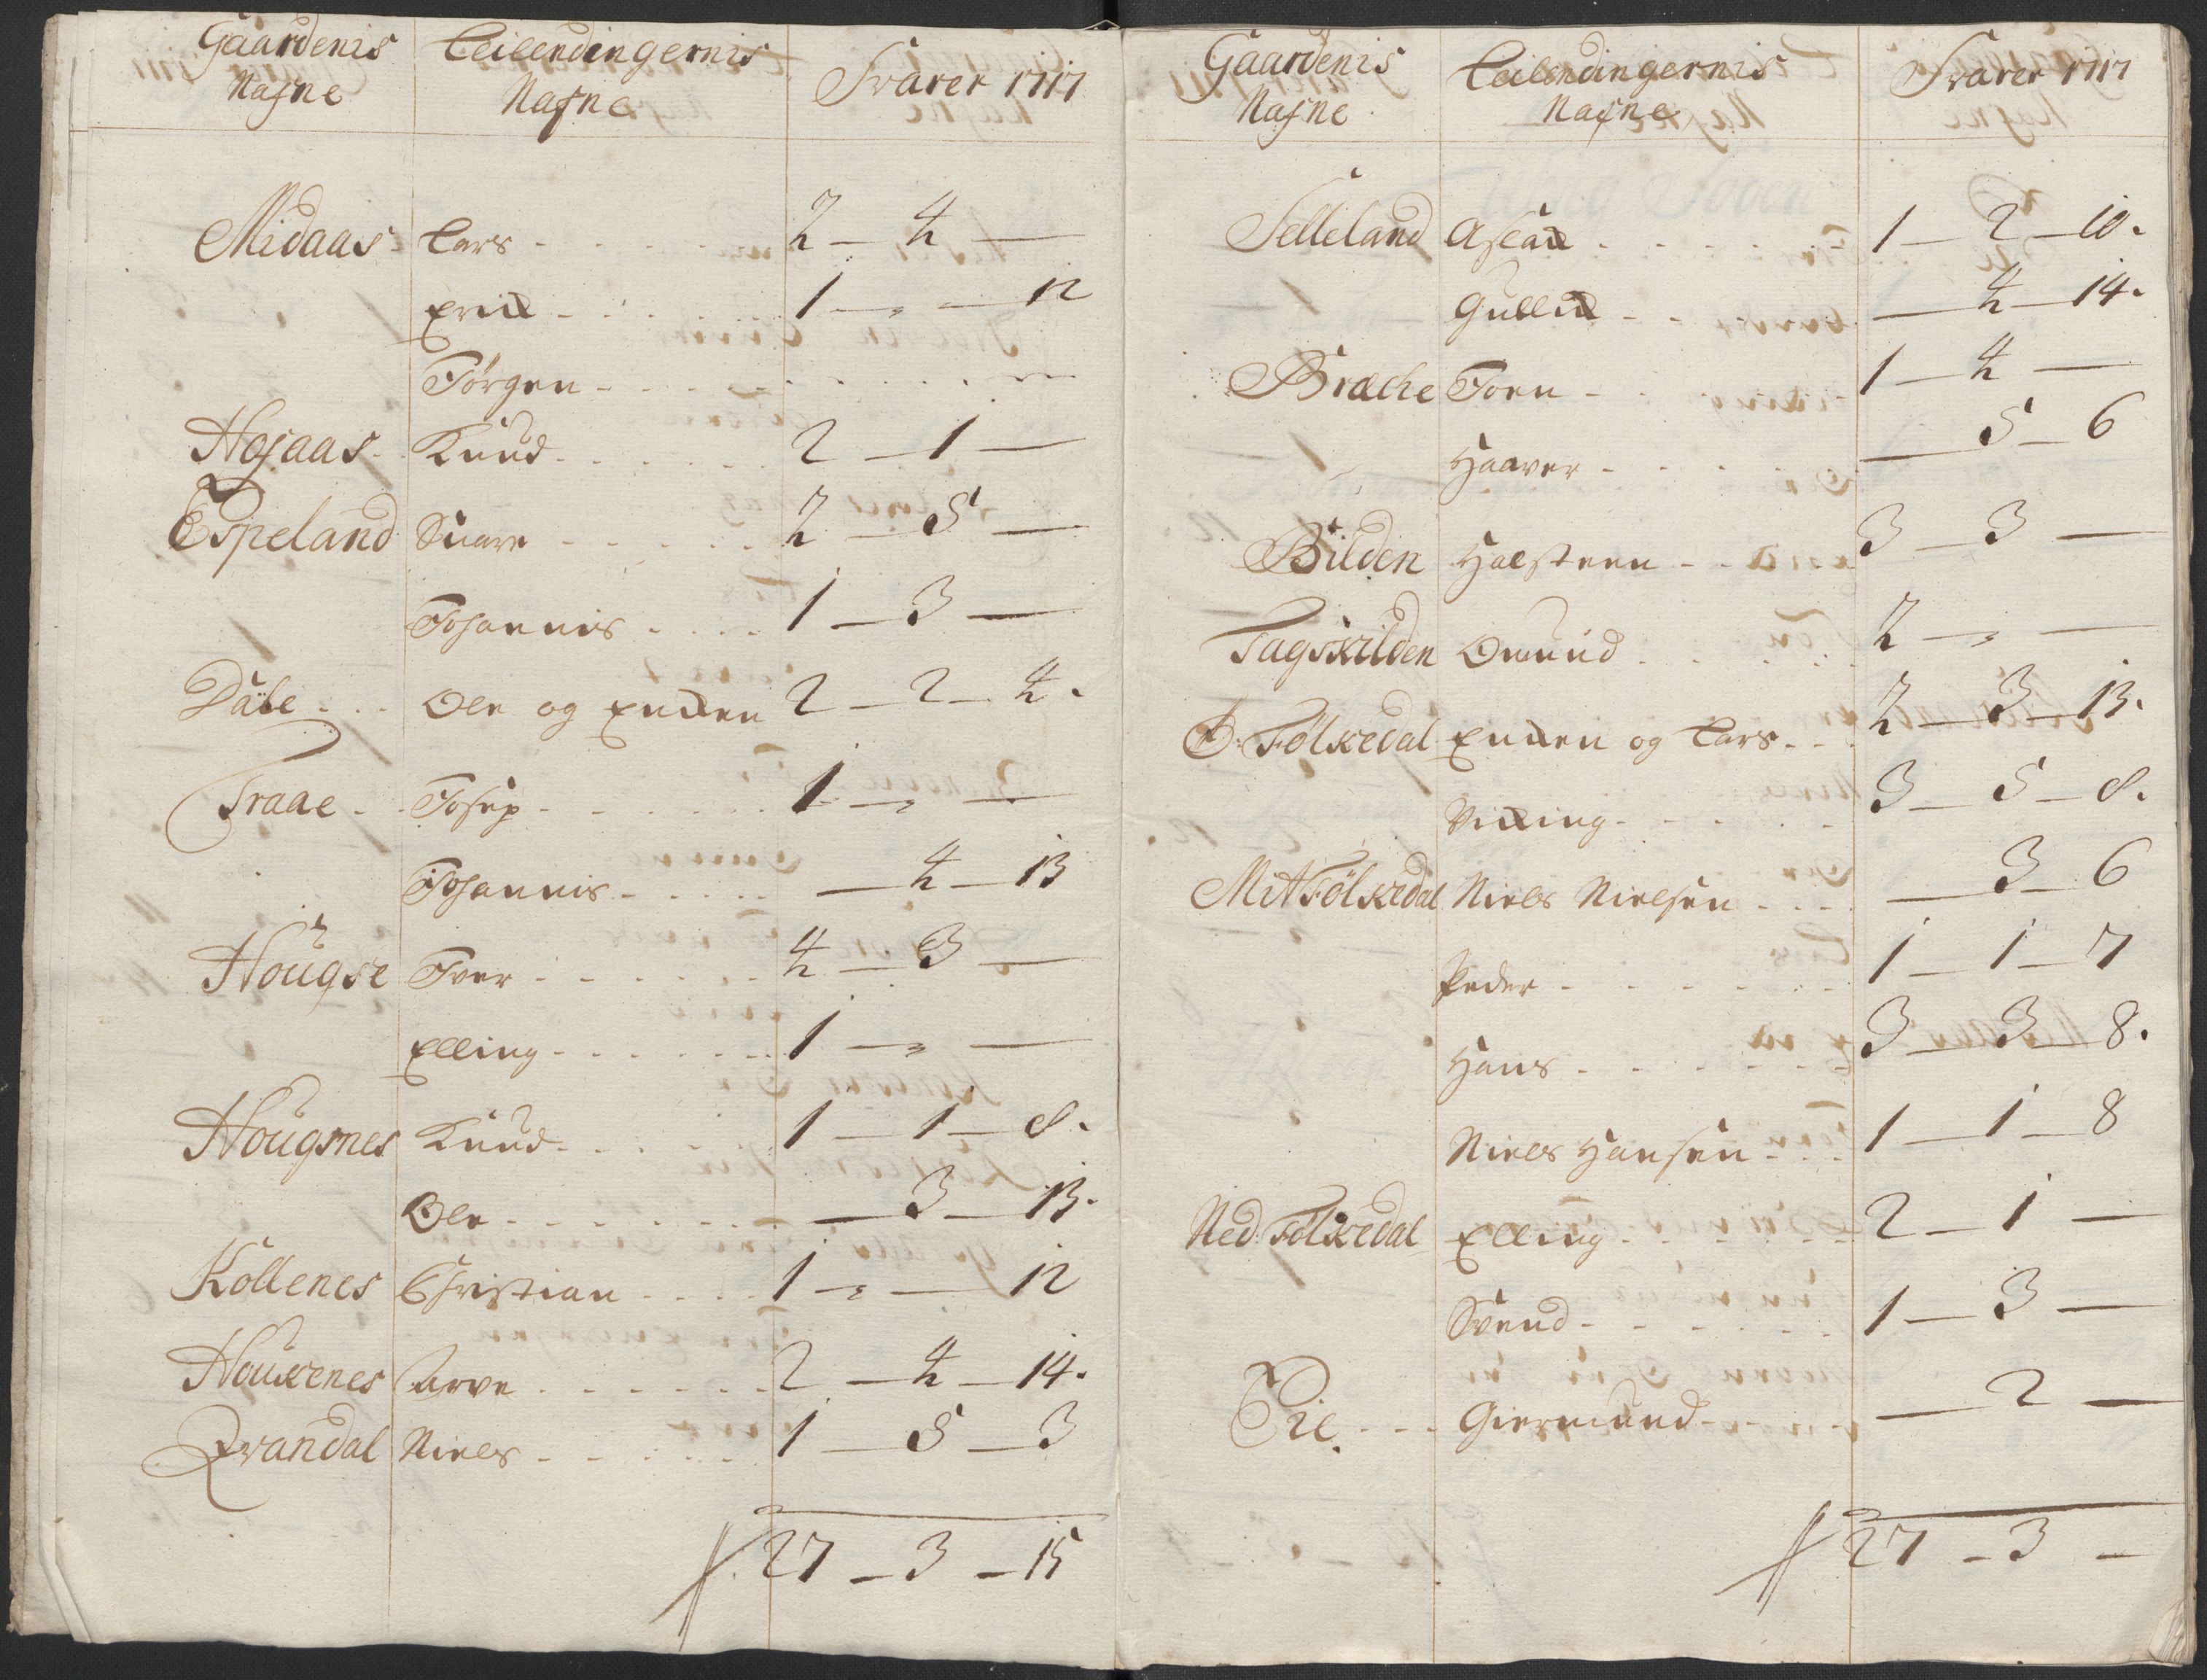 Gaardenis Leilendingernis Svarer 1717
Nafne Nafne
Midaas Lars 2 – 4 –
Erick 1 – „ – 12
Jørgen
Hofaas Knud 2 – 1 –
Espeland Siur 2 – 5 –
Johannis 1 – 3 –
Dale Ole og Enden 2 – 2 – 4.
Traae Josep 1 – „ –
Johannis – 4 – 13
Hougse Iver 4 – 3 –
Elling 1 – „ –
Hougsnes Knud 1 – 1 – 8.
Ole – 3 – 13.
Kollenes Christian 1 – „ – 12
Houkenes Arve 2 – 4 – 14.
Qvandal Niels 1 – 5 – 3
27 – 3 – 15
Gaardenis Leilendingernis Svarer 1717
Nafne Nafne
Selleland Aslack 1 – 2 – 10.
Gullick – 4 – 14.
Bræche Joen 1 – 4 –
Haaver – 5 – 6
Bilden Halsteen 3 – 3 –
Tagskilden Omund 2 – „ –
Ø: Følkedal Enden og Lars 2 – 3 – 13.
Vicking 3 – 5 – 8.
Mit Følkedal Niels Nielsen – 3 – 6
Peder 1 – 1 – 7
Hans 3 – 3 – 8.
Niels Hansen 1 – 1 – 8
Ned: Følkedal Elling 2 – 1 –
Svend 1 – 3 –
Eie Giermund – 2 –
27 – 3 –